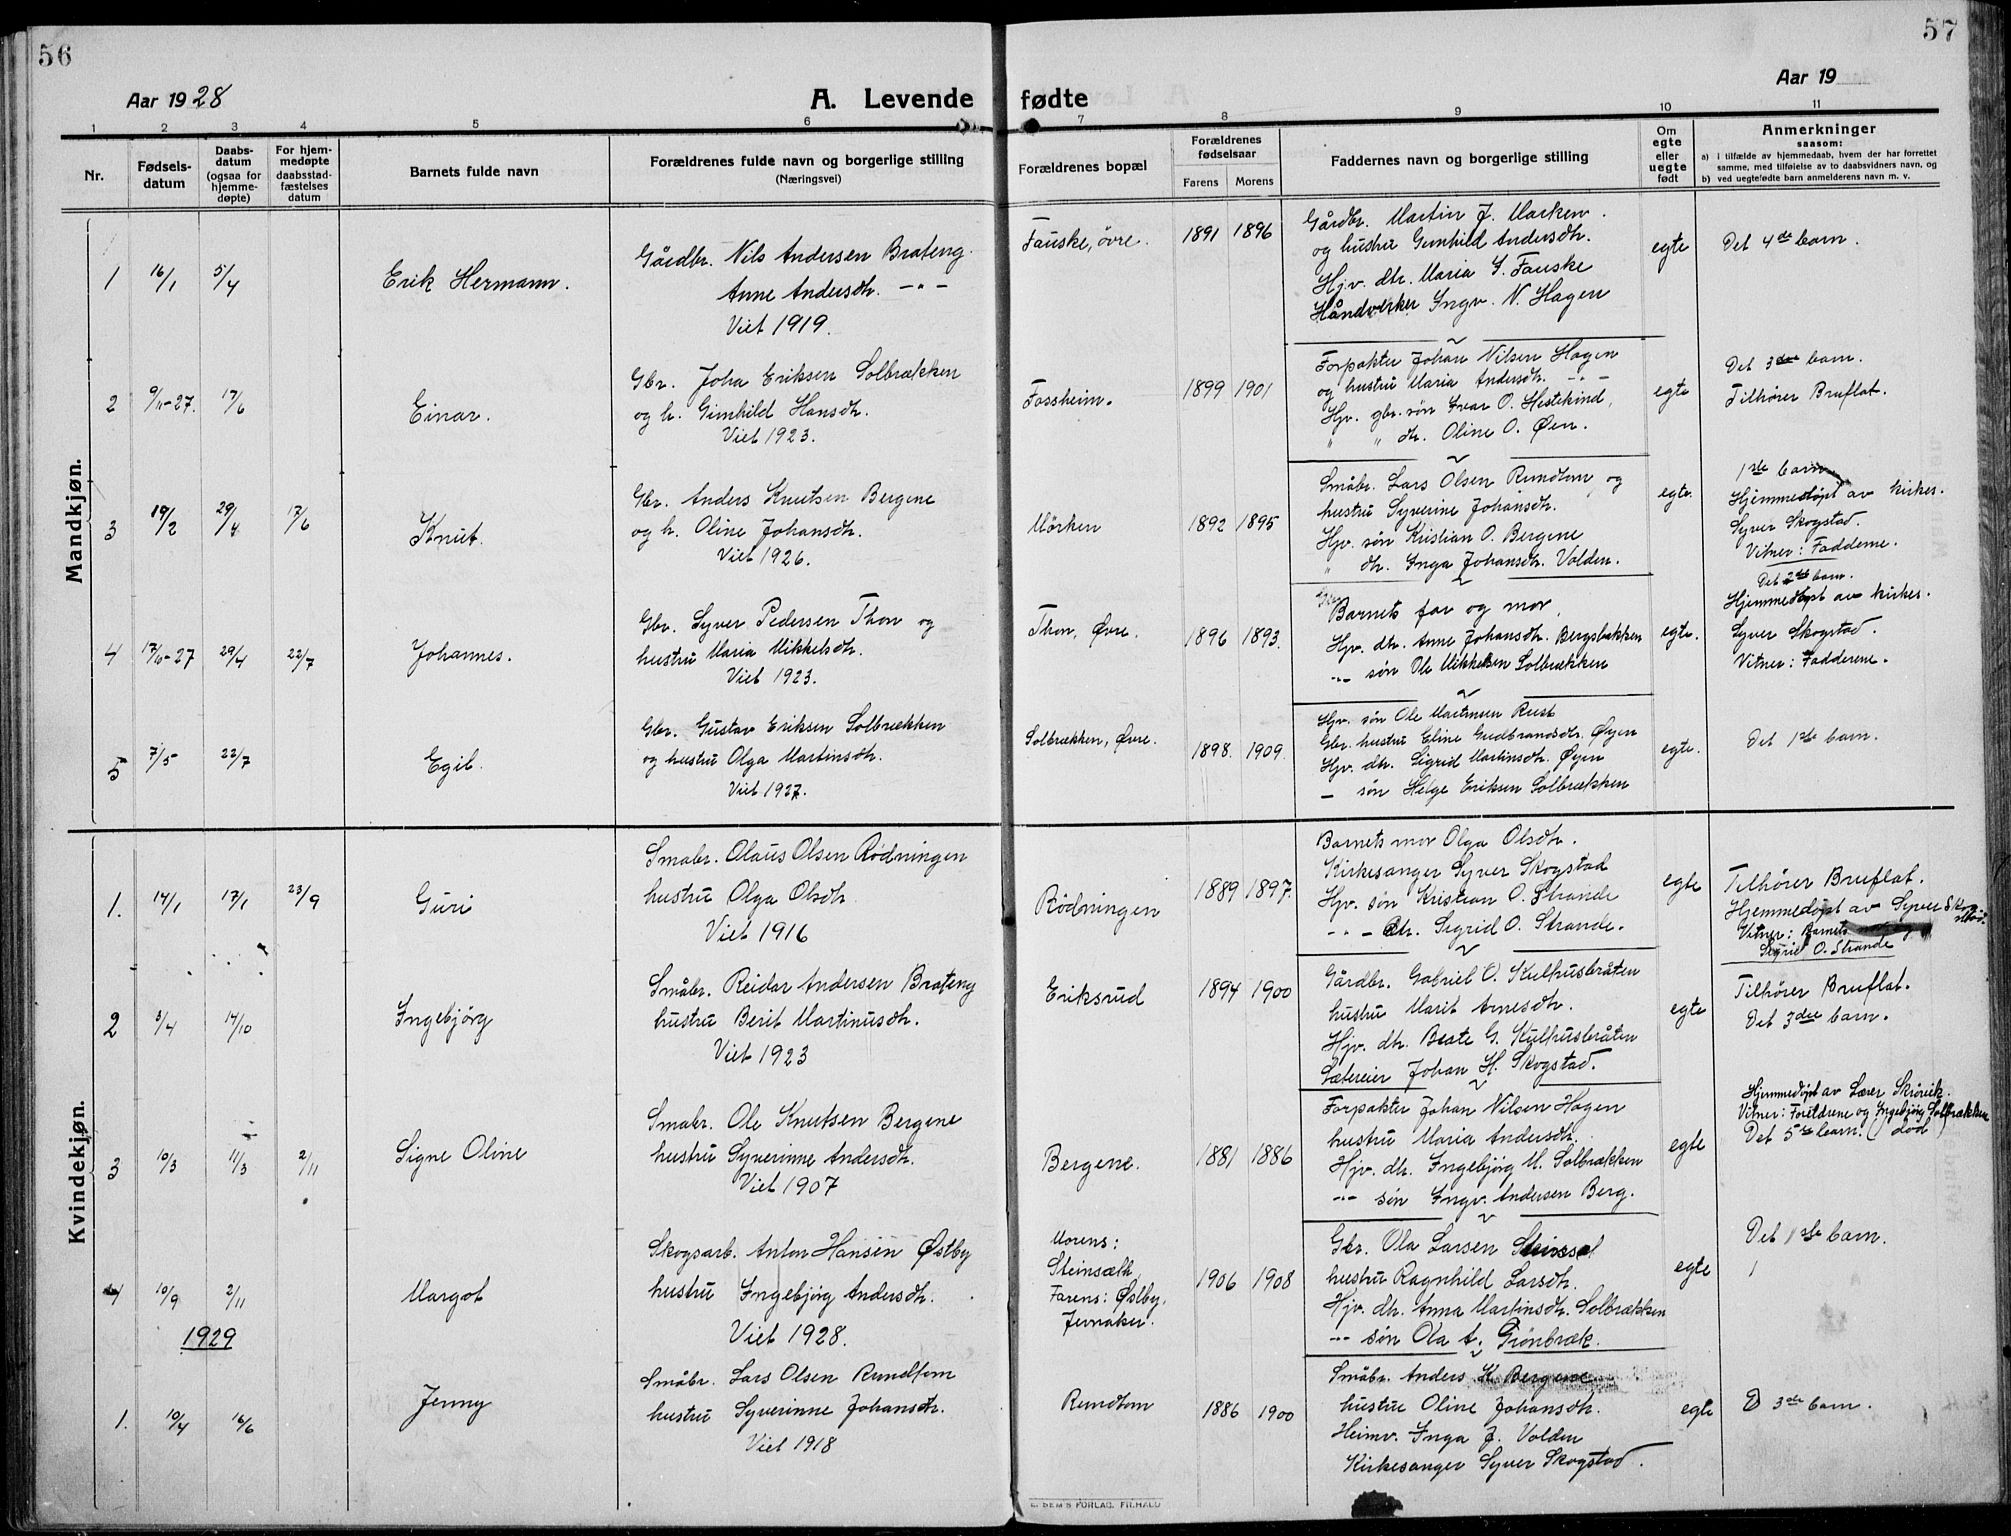 56
57
Aar 1928
A. Levende fødte
Aar 19
1 2 3 4 5 6 7 8 9 10 11
Nr.
Fødsels-
datum
Daabs-
datum
(ogsaa for
hjemme-
døpte)
For hjem-
medøpte
daabsstad-
fæstelses
datum
Barnets fulde navn
Forældrenes fulde navn og borgerlige stilling
(Næringsvei)
Forældrenes bopæl
Forældrenes
fødselsaar
Farens Morens
Faddernes navn og borgerlige stilling
Om
egte
eller
uegte
født
Anmerkninger
saasom:
a) i tilfælde av hjemmedaab, hvem der har forrettet
samme, med tilføielse av to daabsvidners navn, og
b) ved uegtefødte barn anmelderens navn m. v.
Mandkjøn.
1 16/1 5/4 Erik Hermann.
Gårdbr. Nils Andersen Brateng
Anne Andersdtr. – " –
Viet 1919.
Fauske, øvre. 1891 1896
Gårdbr. Martin J. Marken.
og hustru Gunhild Andersdtr.
Hjv. dtr. Maria S. Fauske
Håndverker Ingv. N. Hagen
egte Det 4de barn.
2 9/11-27. 17/6 Einar.
Gbr. Joha Eriksen Solbrækken
og h. Gunhild Hansdtr.
Viet 1923.
Fossheim. 1899 1901
Forpakter Johan Nilsen Hagen
og hustru Maria Andersdtr. – " –
Hjv. gbr. søn Ivar O. Hestekind,
" " dtr. Oline O. Øen.
egte
Det 3die barn.
Tilhører Bruflat.
3 19/2 29/4 17/6 Knut.
Gbr. Anders Knutsen Bergene
og h. Oline Johansdtr.
Viet 1926.
Mörken 1892 1895
Småbr. Lars Olsen Rundtom og
hustru Syverine Johansdtr.
Hjv. søn Kristian O. Bergene
" dtr. Inga Johansdtr. Volden.
egte.
1ste barn
Hjemmedøpt av kirkes.
Syver Skogstad.
Vitner: Fadderne.
4 17/6-27 29/4 22/7 Johannes.
Gbr. Syver Pedersen Thon og
hustru Maria Mikkelsdtr.
Viet 1923.
Thon, Øvre. 1896 1893.
Barnets far og mor,
Hjv. dtr. Anne Johansdtr. Bergsbakken
–"– søn Ole Mikkelsen Solbrækken
egte.
Det 2det barn.
Hjemmedøpt av kirkes.
Syver Skogstad.
Vitner: Fadderene.
5 7/5 22/7 Egil.
Gbr. Gustav Eriksen Solbrækken
og hustru Olga Martinsdtr.
Viet 1927.
Solbrækken, Øvre. 1898. 1909.
Hjv. søn Ole Martinsen Rust
Gbr. hustru Eline Gudbrandsdtr. Øyen
Hjv. dtr. Sigrid Martinsdtr. Øyen
– søn Helge Eriksen Solbrækken
egte. Det 1ste barn.
Kvindekjøn.
1. 14/1 17/1 23/9 Guri
Smabr. Olaus Olsen Rødningen
hustru Olga Olsdtr.
Viet 1916
Rödningen 1889 1897.
Barnets mor Olga Olsdtr.
Kirkesanger Syver Skogstad
Hjv. søn Kristian O. Strande
– " – dtr. Sigrid O. Strande.
egte
Tilhører Bruflat.
Hjemmedøpt av Syver Skogstad.
Vitner: Barnets
Sigrid O. Strande
2 3/4 14/10 Ingebjörg
Småbr. Reidar Andersen Brateng
hustru Berit Martinusdtr.
Viet 1923
Eriksrud 1894 1900
Gårdbr. Gabriel O. Kulhusbråten
hustru Marit Arnesdtr.
Hjv. dtr. Beate G. Kulhusbråten
Sætereier Johan H. Skogstad.
egte
Tilhører Bruflat.
Det 3die barn.
3 10/3 11/3 2/11 Signe Oline
Smabr. Ole Knutsen Bergene
hustru Syverinne Andersdtr.
Viet 1907
Bergene. 1881 1886
Forpakter Johan Nilsen Hagen
hustru Maria Andersdtr.
Hjv. dtr. Ingebjörg M. Solbrækken
–"– søn Ingv. Andersen Berg.
egte
Hjemmedøpt av Lærer Skrövik.
Vitner: Foreldrene og Ingebjörg Solbrækken
Det 5te barn. (død)
4 10/9 2/11 Margot
Skogsarb. Anton Hansen Østby
hustru Ingebjörg Andersdtr.
Viet 1928.
Morens:
Steinsæth
Farens: Østby,
Jevnaker.
1906 1908
Gbr. Ola Larsen
hustru Ragnhild Larsdtr.
Hjv. dtr. Anna Martinsdtr. Solbrækken
–"– søn Ola A. Grönbræk.
egte Det 1ste barn.
1929
1. 10/4 16/6 Jenny
Småbr. Lars Olsen Rundtom
hustru Syverinne Johansdtr.
Viet 1918
Rundtom 1886 1900
Småbr. Anders K. Bergene
hustru Oline Johansdtr.
Heimv. Inga J. Volden
Kirkesanger Syver Skogstad.
egte D 3die barn.
E. SEM'S FORLAG. FR.HALD